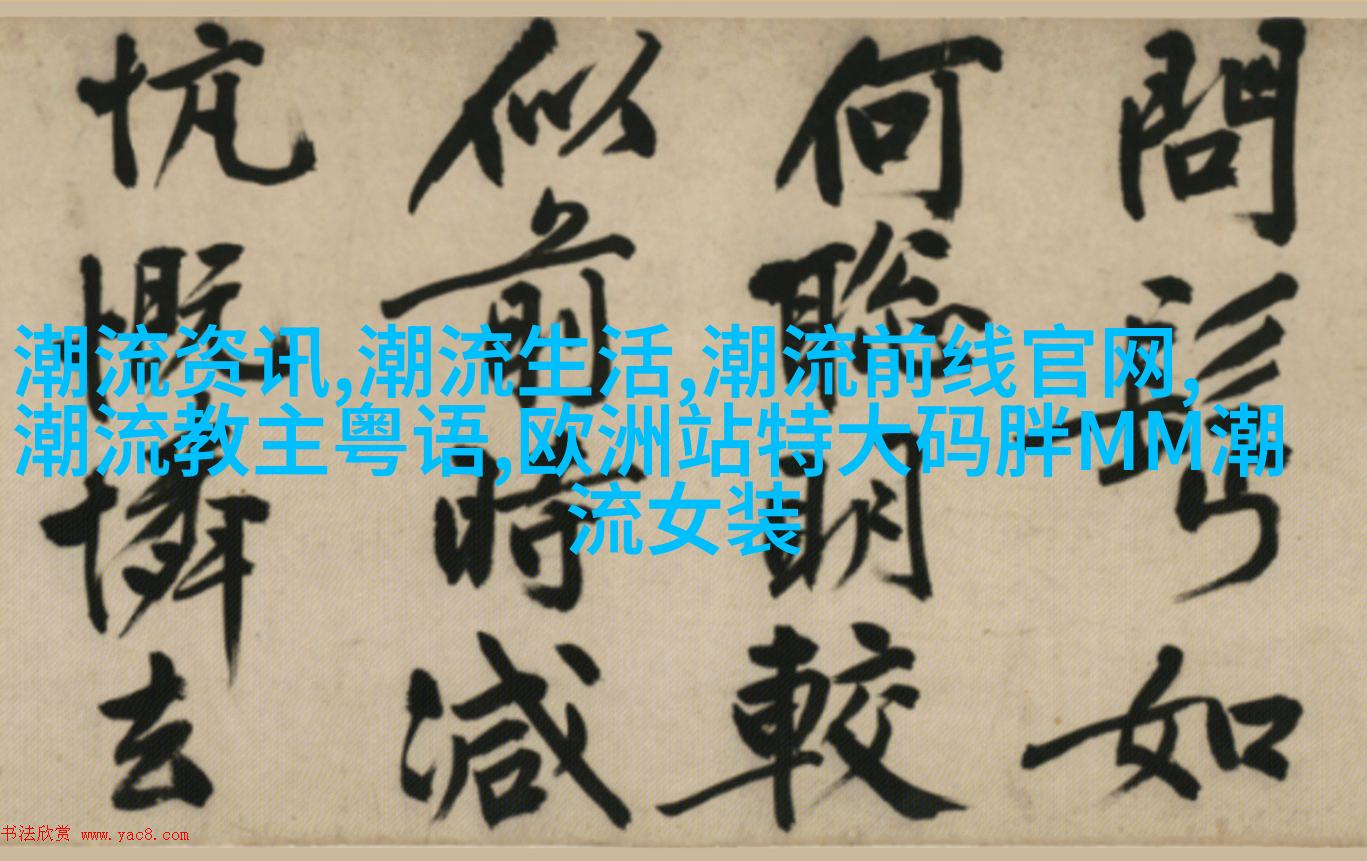 問 如
何聰明較
似前時減
忼慨憐去
潮流资讯,潮流生活,潮流前线官网,
潮流教主粤语,欧洲站特大码胖MM潮
流女装
书法欣赏 www.yac8.com